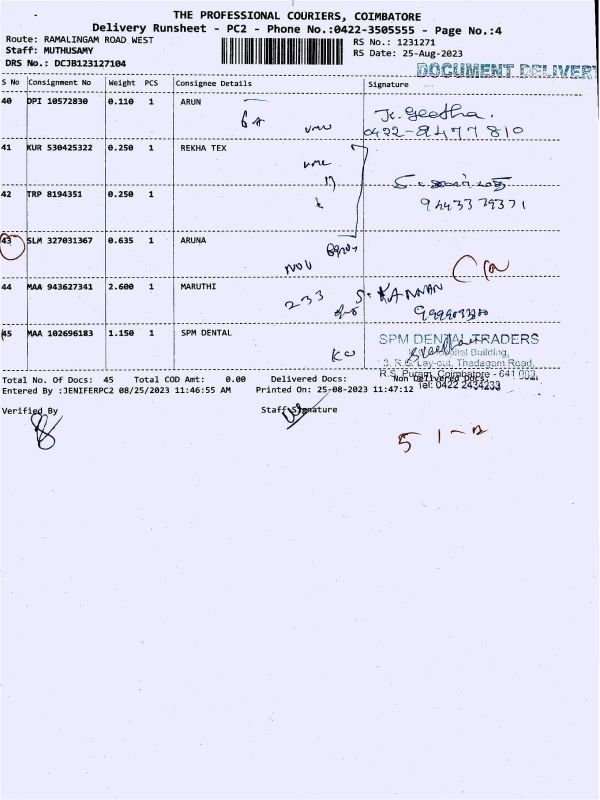 THE PROFESSIONAL COURIERS, COIMBATORE
Delivery Runsheet - PC2 - Phone No.:0422-3505555 - Page No.:4
Route: RAMALINGAM ROAD WEST
RS No.: 1231271
Staff: MUTHUSAMY
RS Date: 25-Aug-2023
DRS No.: DCJB123127104
DOCUMENT DELIVERY
S No Consignment No Weight PCS Consignee Details Signature
40 DPI 10572830 0.110 1 ARUN
K. Geetha.
0422-2477810
41 KUR 530425322 0.250 1 REKHA TEX
42 TRP 8194351 0.250 1
9443379371
43 SLM 327031367 0.635 1 ARUNA
44 MAA 943627341 2.600 1 MARUTHI
233 S. KANNAN
45 MAA 102696183 1.150 1 SPM DENTAL
SPM DENTAL TRADERS
Building,
3, R.G. Lay-out, Thadagam Road,
R.S. Puram, Coimbatore - 641 003.
Tel: 0422 2434233
Total No. Of Docs: 45 Total COD Amt: 0.00 Delivered Docs: Non Delivered Docs:
Entered By :JENIFERPC2 08/25/2023 11:46:55 AM Printed On: 25-08-2023 11:47:12
Verified By Staff Signature